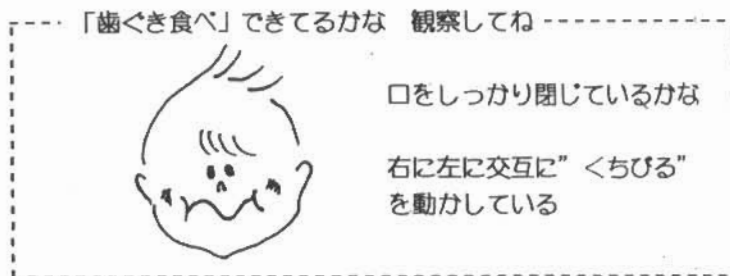 「歯ぐき食べ」できてるかな　観察してね
口をしっかり閉じているかな
右に左に交互に”くちびる”
を動かしている